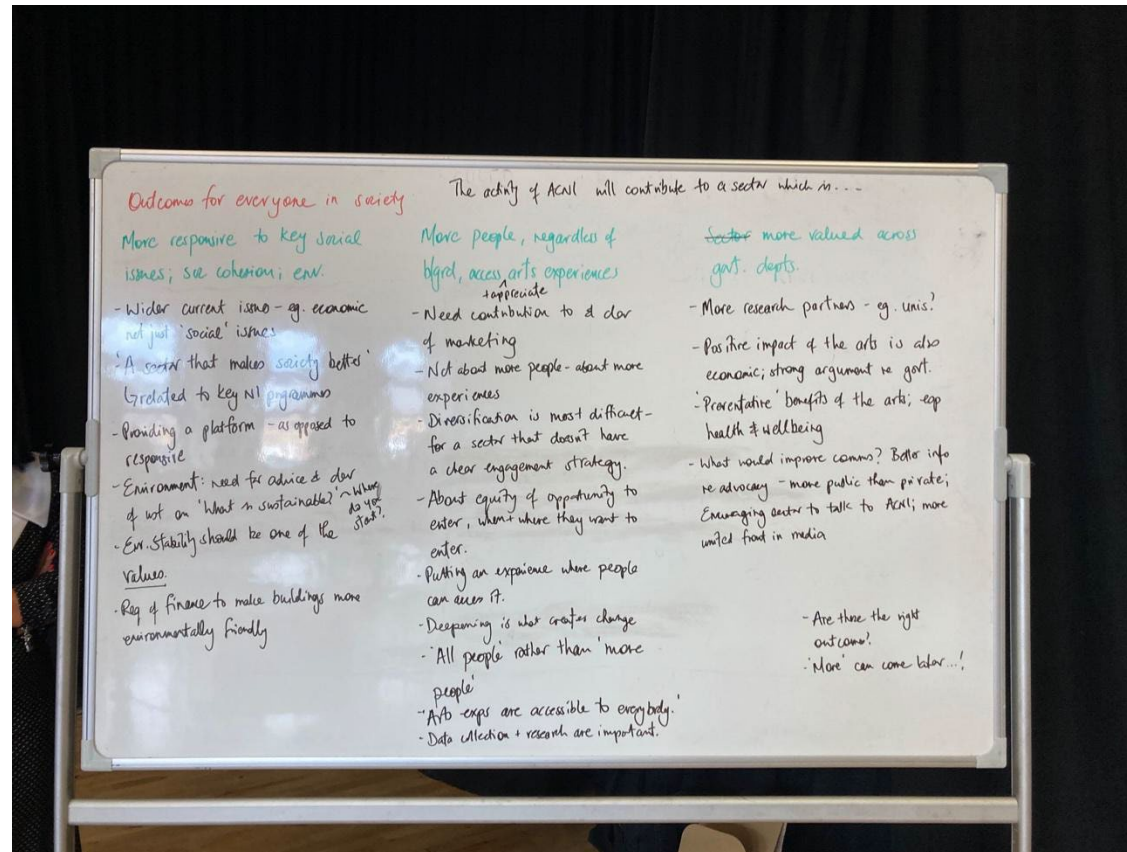 Outcomes for everyone in society
The activity of ACNI will contribute to a sector which is...
More responsive to key social
issues; soc cohesion; env.
- Wider current issues - eg. economic
not just 'social' issues
'A sector that makes society better'
related to key NI programmes
- Providing a platform - as opposed to
responsive
- Environment: need for advice & dev
of wot on 'What is sustainable?' ~ Where
do you
start?
- Env. Stability should be one of the
values.
- Req of finance to make buildings more
environmentally friendly
More people, regardless of
b/grd, access arts experiences
+ appreciate
- Need contribution to & dev
of marketing
- Not about more people - about more
experiences
- Diversification is most difficult -
for a sector that doesn't have
a clear engagement strategy.
- About equity of opportunity to
enter, when + where they want to
enter.
- Putting an experience where people
can access it.
- Deepening is what creates change
- 'All people' rather than 'more
people'
- 'Arts exps are accessible to everybody.'
- Data collection + research are important.
Sector more valued across
govt. depts.
- More research partners - eg. unis?
- Positive impact of the arts is also
economic; strong argument re govt.
- 'Preventative' benefits of the arts; esp
health & wellbeing
- What would improve comms? Better info
re advocacy - more public than private;
Encouraging sector to talk to ACNI; more
united front in media
- Are these the right
outcomes?
- 'More' can come later...!